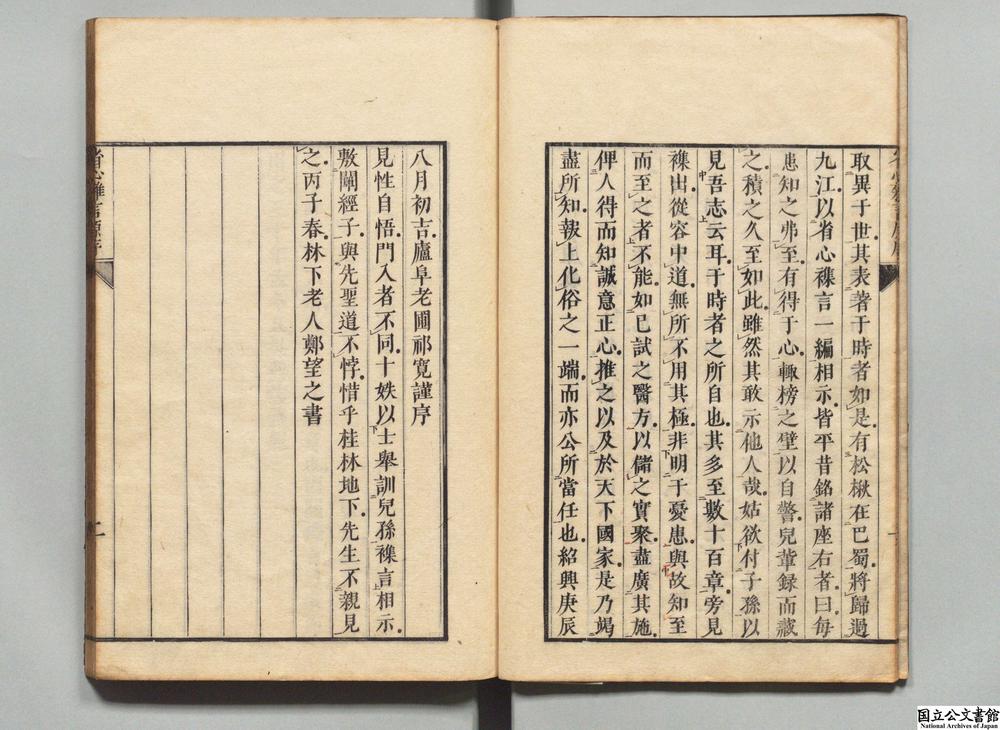 取異于世其表著于時者如是有松楸在巴蜀將歸過
九江以省心襍言一編相示皆平昔銘諸座右者曰每
患知之弗至有得于心輒榜之壁以自警兒輩録而藏
之積之久至如此雖然其敢示他人哉姑欲付子孫以
見吾志云耳于時者之所自也其多至數十百章旁見
襍出從容中道無所不用其極非明于憂患與故知至
而至之者不能如已試之醫方以儲之實聚盡廣其施
俾人得而知誠意正心推之以及於天下國家是乃竭
盡所知報上化俗之一端而亦公所當任也紹興庚辰
八月初吉廬阜老圃祁寬謹序
見性自悟門入者不同十妷以士舉訓兒孫襍言相示
敷闡經子與先聖道不悖惜乎桂林地下先生不親見
之丙子春林下老人鄭望之書
省心雜言原序
二
国立公文書館
National Archives of Japan